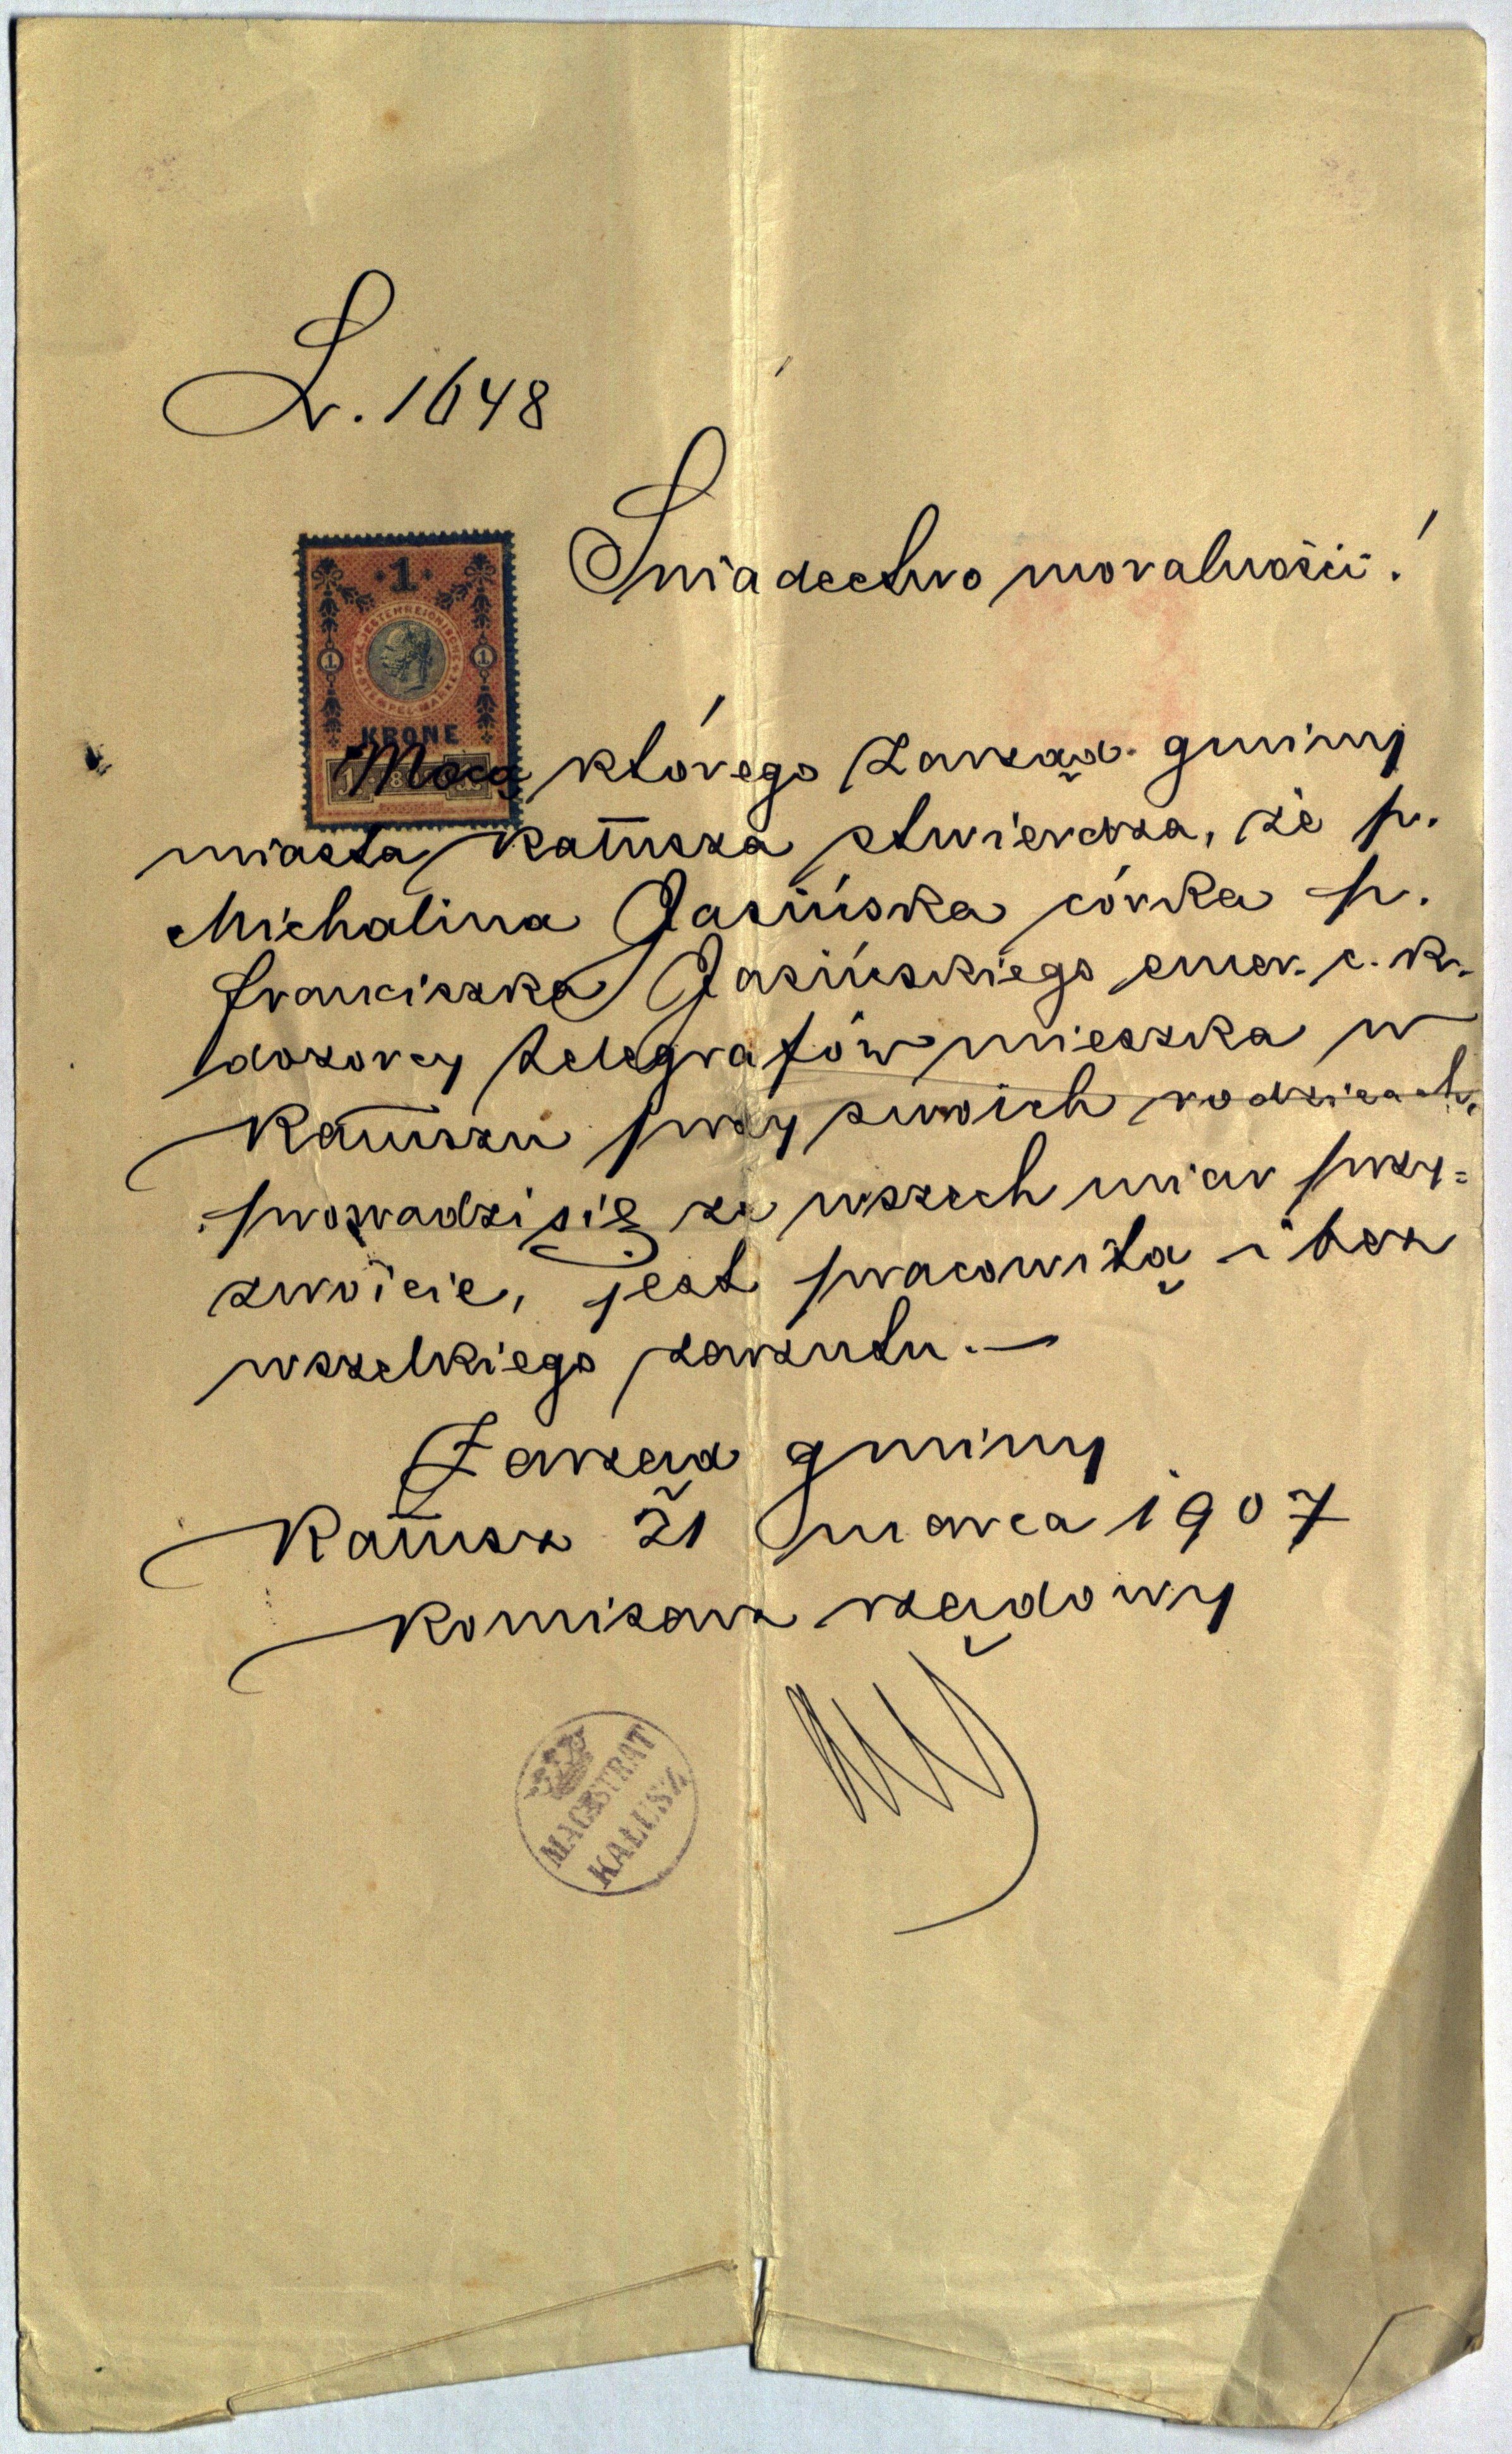 L. 1648
Świadectwo moralności!
1
K.K. OESTERREICHISCHE STEMPELMARKE
1 1
KRONE
Mocą którego Zarząd gminy
miasta Kałusza stwierdza, że p.
Michalina Jasińska córka p.
Franciszka Jasińskiego emer. c. k.
dozorcy telegrafów mieszka w
Kałuszu przy swoich rodzicach,
prowadzi się ze wszech miar przy=
zwoicie, jest pracowitą i bez
wszelkiego zarzutu.—
Zarząd gminy
Kałusz 21 marca 1907
Komisarz rządowy
MAGISTRAT
KAŁUSZ